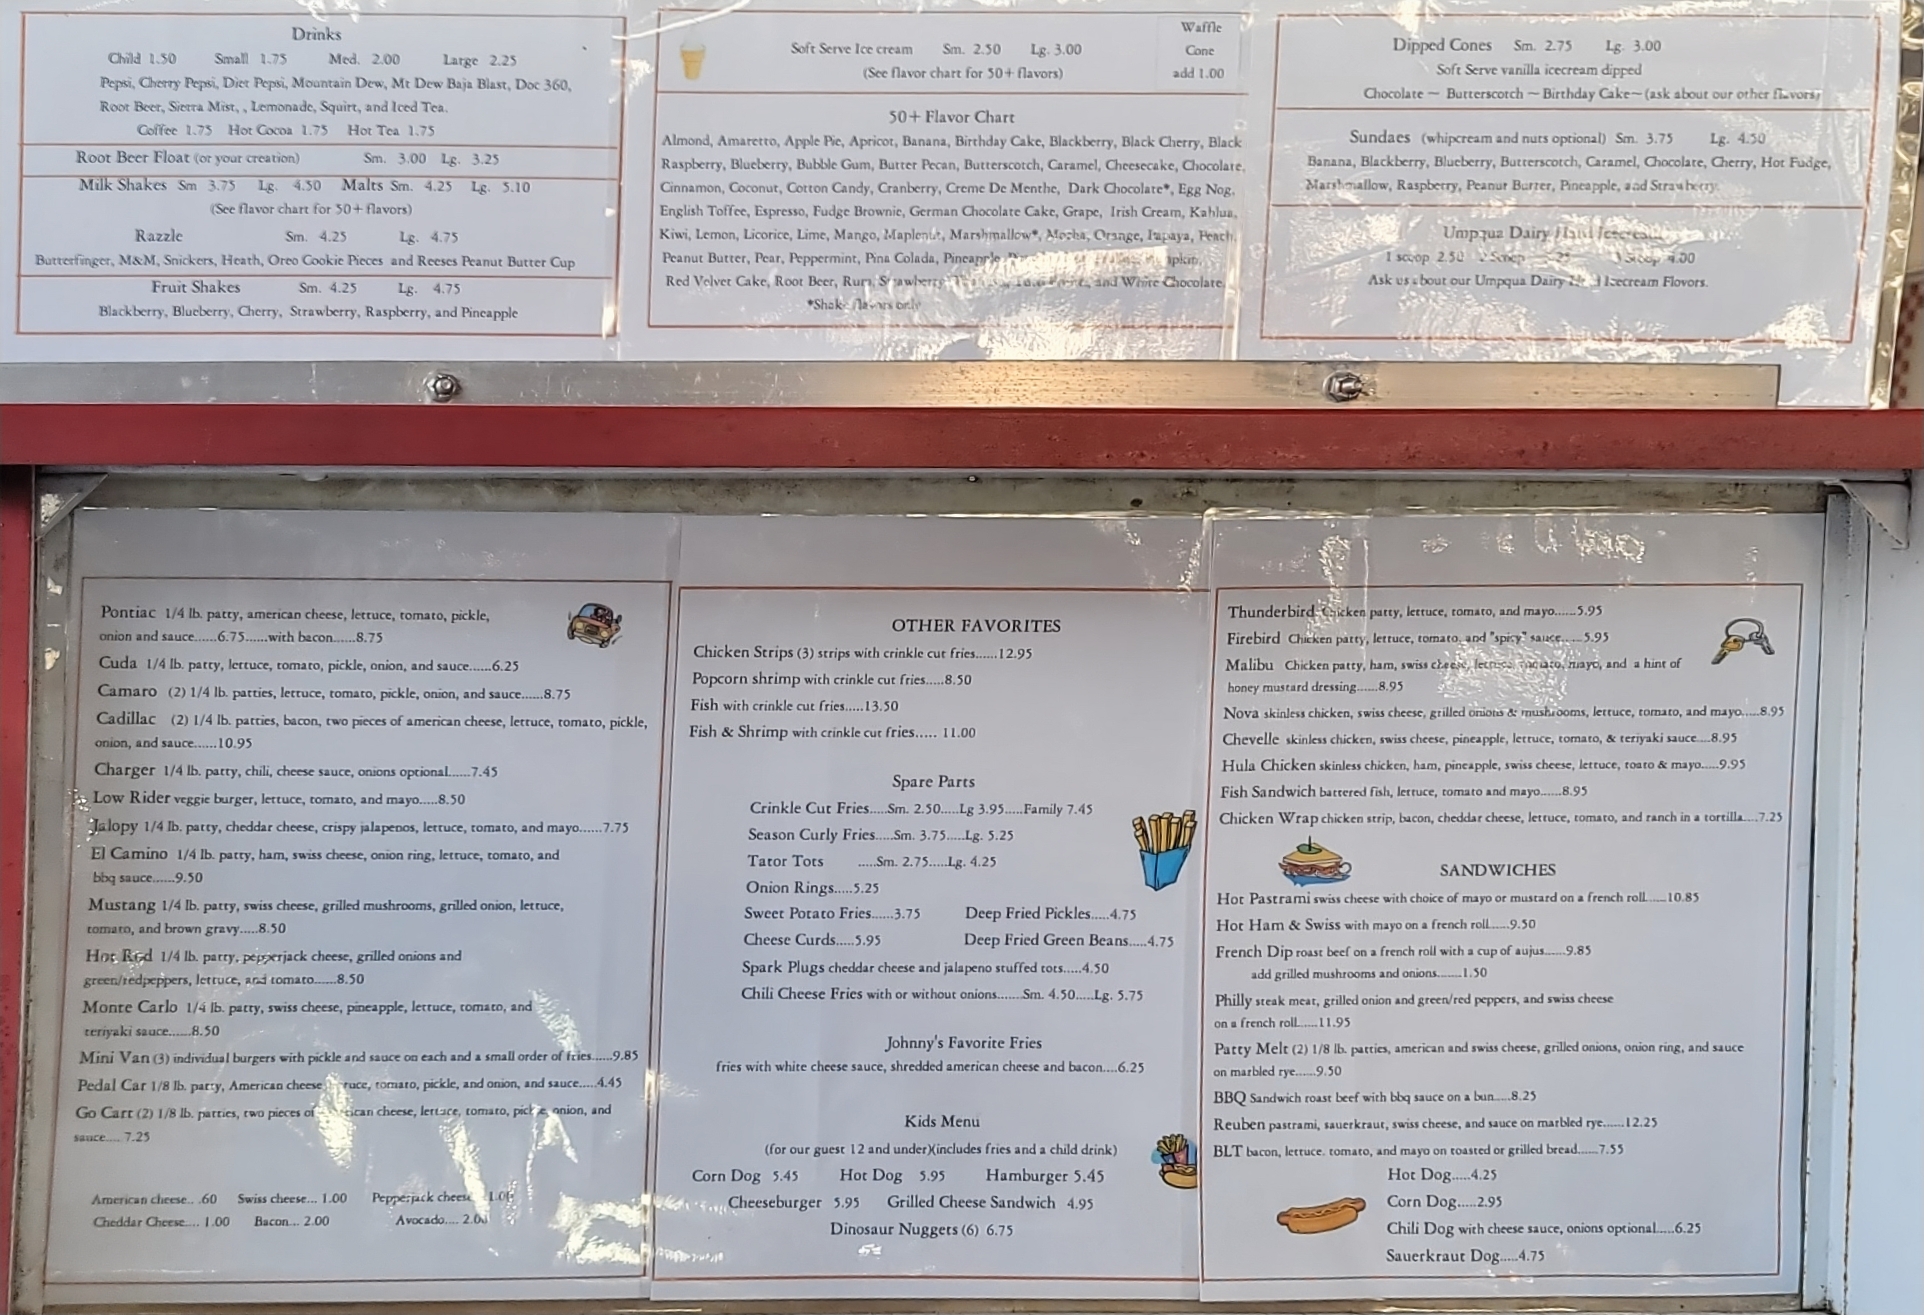 Drinks
Child 1.50 Small 1.75 Med. 2.00 Large 2.25
Pepsi, Cherry Pepsi, Diet Pepsi, Mountain Dew, Mt Dew Baja Blast, Doc 360,
Root Beer, Sierra Mist, , Lemonade, Squirt, and Iced Tea.
Coffee 1.75 Hot Cocoa 1.75 Hot Tea 1.75
Root Beer Float (or your creation) Sm. 3.00 Lg. 3.25
Milk Shakes Sm 3.75 Lg. 4.50 Malts Sm. 4.25 Lg. 5.10
(See flavor chart for 50+ flavors)
Razzle Sm. 4.25 Lg. 4.75
Butterfinger, M&M, Snickers, Heath, Oreo Cookie Pieces and Reeses Peanut Butter Cup
Fruit Shakes Sm. 4.25 Lg. 4.75
Blackberry, Blueberry, Cherry, Strawberry, Raspberry, and Pineapple
Soft Serve Ice cream Sm. 2.50 Lg. 3.00
(See flavor chart for 50+ flavors)
Waffle
Cone
add 1.00
50+ Flavor Chart
Almond, Amaretto, Apple Pie, Apricot, Banana, Birthday Cake, Blackberry, Black Cherry, Black
Raspberry, Blueberry, Bubble Gum, Butter Pecan, Butterscotch, Caramel, Cheesecake, Chocolate,
Cinnamon, Coconut, Cotton Candy, Cranberry, Creme De Menthe, Dark Chocolate*, Egg Nog,
English Toffee, Espresso, Fudge Brownie, German Chocolate Cake, Grape, Irish Cream, Kahlua,
Kiwi, Lemon, Licorice, Lime, Mango, Maplenut, Marshmallow*, Mocha, Orange, Papaya, Peach,
Peanut Butter, Pear, Peppermint, Pina Colada, Pineapple
Red Velvet Cake, Root Beer, Rum, Strawberry, and White Chocolate
*Shake flavors only
Dipped Cones Sm. 2.75 Lg. 3.00
Soft Serve vanilla icecream dipped
Chocolate ~ Butterscotch ~ Birthday Cake~ (ask about our other flavors)
Sundaes (whipcream and nuts optional) Sm. 3.75 Lg. 4.50
Banana, Blackberry, Blueberry, Butterscotch, Caramel, Chocolate, Cherry, Hot Fudge,
Marshmallow, Raspberry, Peanut Butter, Pineapple, and Strawberry.
Umpqua Dairy Hard Icecream
1 scoop 2.50 2 Scoop 3 Scoop 4.00
Ask us about our Umpqua Dairy Hard Icecream Flovors.
Pontiac 1/4 lb. patty, american cheese, lettuce, tomato, pickle,
onion and sauce......6.75......with bacon......8.75
Cuda 1/4 lb. patty, lettuce, tomato, pickle, onion, and sauce......6.25
Camaro (2) 1/4 lb. patties, lettuce, tomato, pickle, onion, and sauce......8.75
Cadillac (2) 1/4 lb. patties, bacon, two pieces of american cheese, lettuce, tomato, pickle,
onion, and sauce......10.95
Charger 1/4 lb. patty, chili, cheese sauce, onions optional......7.45
Low Rider veggie burger, lettuce, tomato, and mayo.....8.50
Jalopy 1/4 lb. patty, cheddar cheese, crispy jalapenos, lettuce, tomato, and mayo......7.75
El Camino 1/4 lb. patty, ham, swiss cheese, onion ring, lettuce, tomato, and
bbq sauce......9.50
Mustang 1/4 lb. patty, swiss cheese, grilled mushrooms, grilled onion, lettuce,
tomato, and brown gravy.....8.50
Hot Rod 1/4 lb. patty, pepperjack cheese, grilled onions and
green/redpeppers, lettuce, and tomato......8.50
Monte Carlo 1/4 lb. patty, swiss cheese, pineapple, lettuce, tomato, and
teriyaki sauce......8.50
Mini Van (3) individual burgers with pickle and sauce on each and a small order of fries.....9.85
Pedal Car 1/8 lb. patty, American cheese, lettuce, tomato, pickle, and onion, and sauce.....4.45
Go Cart (2) 1/8 lb. patties, two pieces of american cheese, lettuce, tomato, pickle, onion, and
sauce.... 7.25
American cheese.. .60 Swiss cheese... 1.00 Pepperjack cheese 1.00
Cheddar Cheese.... 1.00 Bacon... 2.00 Avocado.... 2.00
OTHER FAVORITES
Chicken Strips (3) strips with crinkle cut fries......12.95
Popcorn shrimp with crinkle cut fries.....8.50
Fish with crinkle cut fries.....13.50
Fish & Shrimp with crinkle cut fries..... 11.00
Spare Parts
Crinkle Cut Fries.....Sm. 2.50.....Lg 3.95.....Family 7.45
Season Curly Fries.....Sm. 3.75.....Lg. 5.25
Tator Tots .....Sm. 2.75.....Lg. 4.25
Onion Rings.....5.25
Sweet Potato Fries......3.75 Deep Fried Pickles.....4.75
Cheese Curds.....5.95 Deep Fried Green Beans.....4.75
Spark Plugs cheddar cheese and jalapeno stuffed tots.....4.50
Chili Cheese Fries with or without onions.......Sm. 4.50.....Lg. 5.75
Johnny's Favorite Fries
fries with white cheese sauce, shredded american cheese and bacon....6.25
Kids Menu
(for our guest 12 and under)(includes fries and a child drink)
Corn Dog 5.45 Hot Dog 5.95 Hamburger 5.45
Cheeseburger 5.95 Grilled Cheese Sandwich 4.95
Dinosaur Nuggets (6) 6.75
Thunderbird Chicken patty, lettuce, tomato, and mayo......5.95
Firebird Chicken patty, lettuce, tomato, and "spicy" sauce......5.95
Malibu Chicken patty, ham, swiss cheese, lettuce, tomato, mayo, and a hint of
honey mustard dressing......8.95
Nova skinless chicken, swiss cheese, grilled onions & mushrooms, lettuce, tomato, and mayo.....8.95
Chevelle skinless chicken, swiss cheese, pineapple, lettuce, tomato, & teriyaki sauce....8.95
Hula Chicken skinless chicken, ham, pineapple, swiss cheese, lettuce, toato & mayo.....9.95
Fish Sandwich battered fish, lettuce, tomato and mayo......8.95
Chicken Wrap chicken strip, bacon, cheddar cheese, lettuce, tomato, and ranch in a tortilla....7.25
SANDWICHES
Hot Pastrami swiss cheese with choice of mayo or mustard on a french roll......10.85
Hot Ham & Swiss with mayo on a french roll......9.50
French Dip roast beef on a french roll with a cup of aujus......9.85
add grilled mushrooms and onions.......1.50
Philly steak meat, grilled onion and green/red peppers, and swiss cheese
on a french roll......11.95
Patty Melt (2) 1/8 lb. patties, american and swiss cheese, grilled onions, onion ring, and sauce
on marbled rye......9.50
BBQ Sandwich roast beef with bbq sauce on a bun.....8.25
Reuben pastrami, sauerkraut, swiss cheese, and sauce on marbled rye......12.25
BLT bacon, lettuce. tomato, and mayo on toasted or grilled bread......7.55
Hot Dog.....4.25
Corn Dog.....2.95
Chili Dog with cheese sauce, onions optional.....6.25
Sauerkraut Dog.....4.75